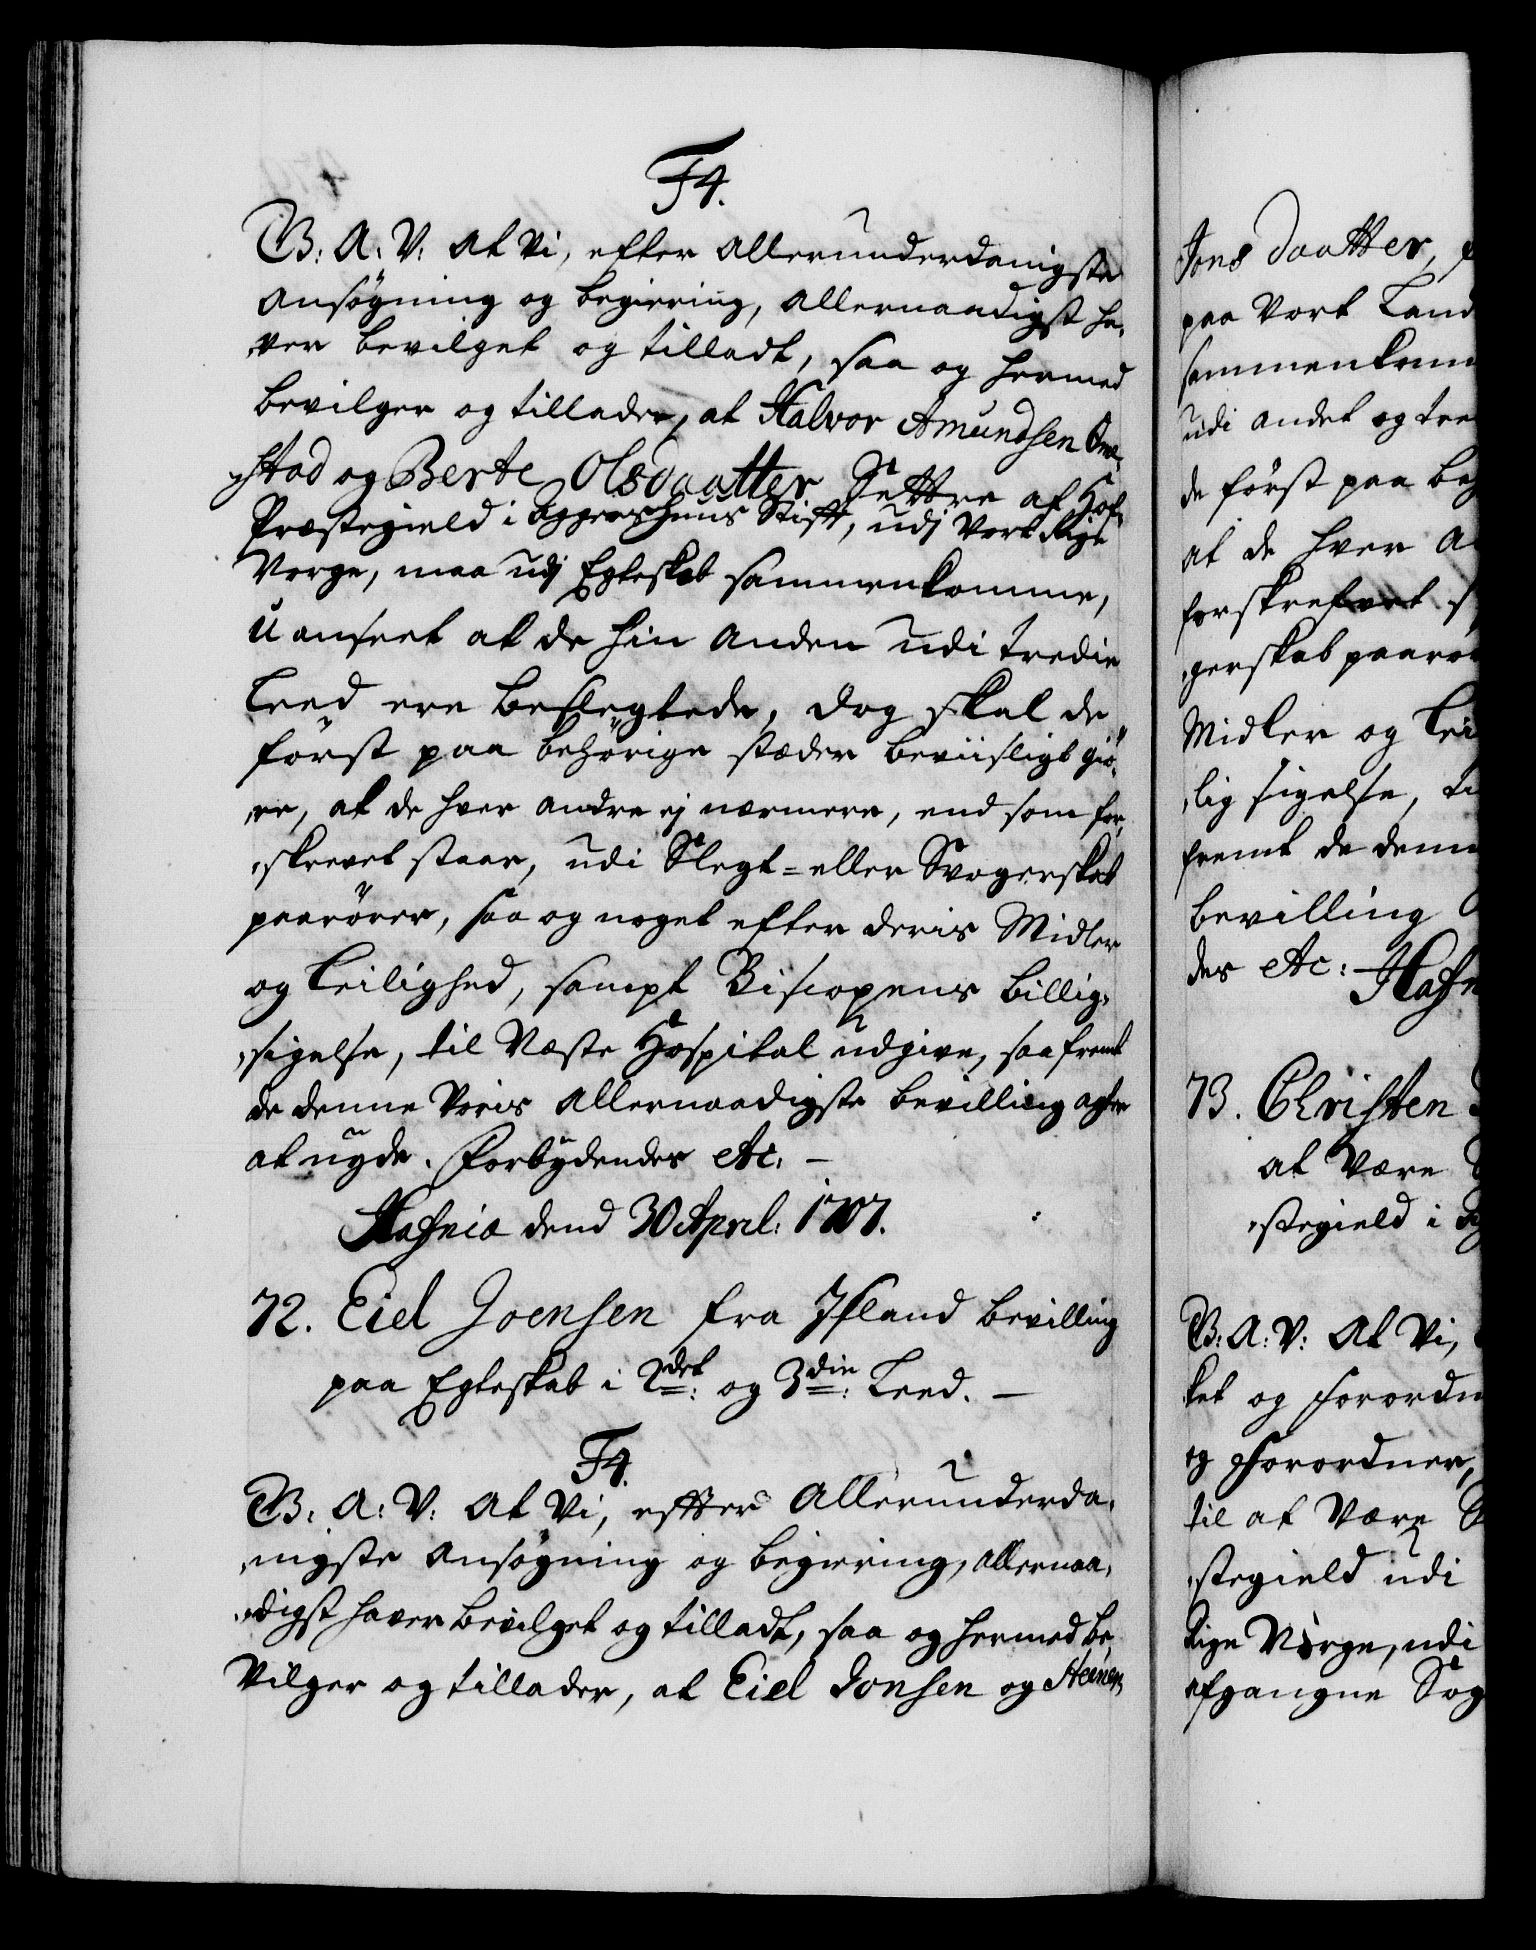 F4.
B: A: V: at Vi, efter allerunderdanigste
ansögning og begiering, allernaadigst ha,
,ver bevilget og tilladt, saa og hermed
bevilger og tillader, at Halvor Amundsen
,stad og Berte Olsdaatter Settre af Hof,
Præstegield i Aggershuus Stift, udj Vort Rige
Norge, maa udj Egteskab sammenkomme,
Uanseet at de hin anden udi tredie
Leed ere beslegtede, dog skal de
först paa behörige stæder beviisligt giö,
,re, at de hver andre ej nærmere, end som for,
,skrevet staar, udi Slegt- eller Svogerskab
paarörer, saa og noget efter deris Midler
og Leilighed, sampt Biscopens billig,
,sigelse, til Næste Hospital udgive, saafremt
de denne Voris allernaadigste bevilling agter
at nyde. Forbydendes etc: –
Hafnia dend 30 April: 1707.
72. Eiel Joensen fra Island bevilling
paa Egteskab i 2det: og 3die: Leed. –
F4.
B: A: V: at Vi, efter allerunderda,
,nigste ansögning og begiering, allernaa,
,digst haver bevilget og tilladt, saa og hermed be,
Vilger og tillader, at Eiel Jonsen og
Jons daatter,
paa Vort Land
sammenkom
udi andet og tre
de först paa beh
at de hver a
forskrefvet s
,gerskab paarör
Midler og Lei
,lig sigelse, ti
fremt de denn
bevilling
des etc: Hafn
73. Christen
at Være
,stegield i Ag
B: A: V: at Vi,
ket og forordn
og forordner,
til at Være
,stegield udi
Rige Norge, udi
afgangne Sog